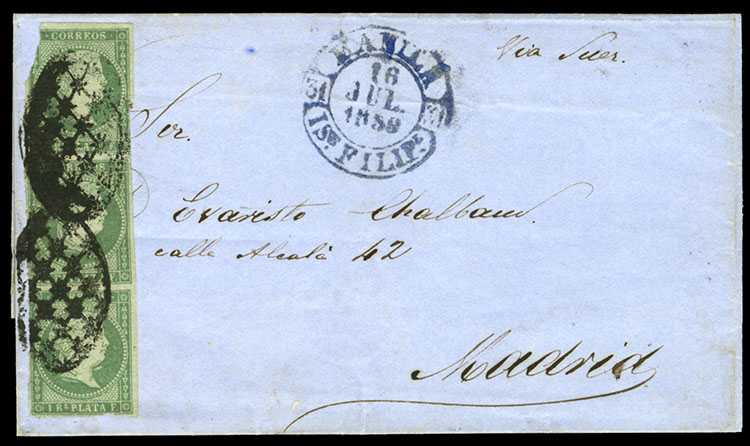 CORREOS
MANILA
16
JUL.
1858
IS.S FILIP.S
Via Suez.
Sor.
Evaristo Chalbaud.
calle Alcalá 42
Madrid
1 RL PLATA F.